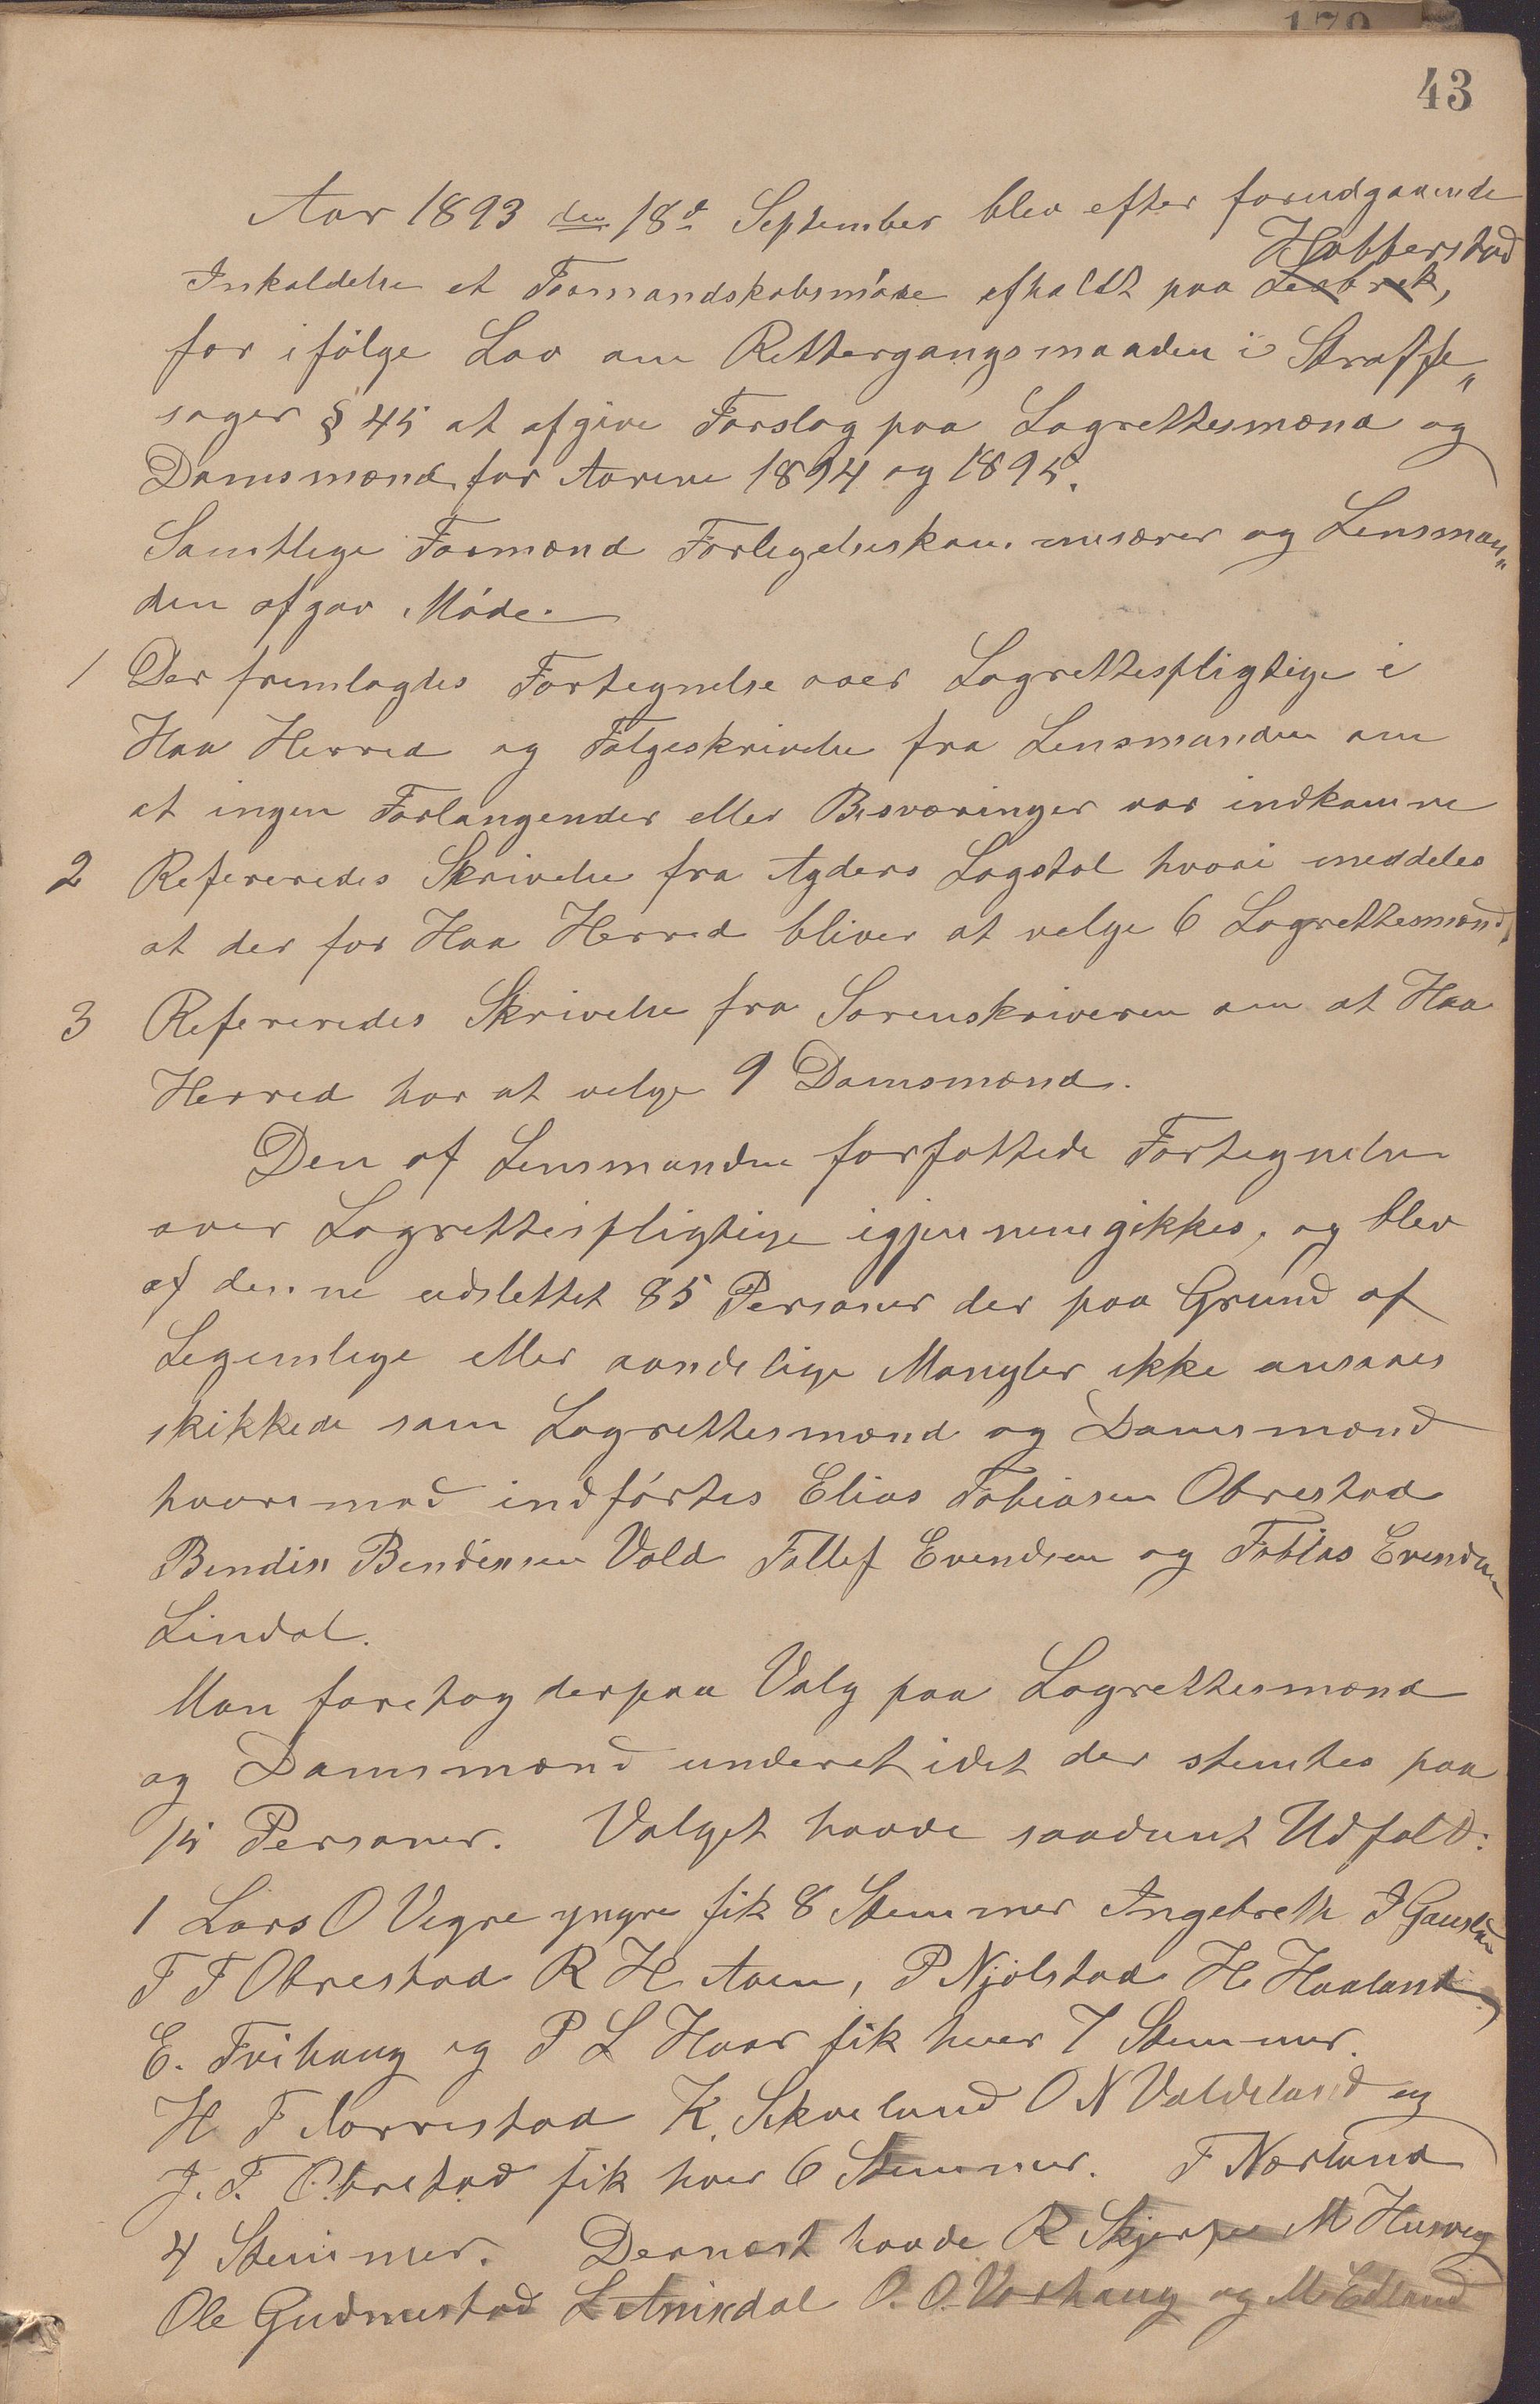 43
Aar 1893 den 18de September blev efter forudgaaende
Indkaldelse et Formandskabsmøde afholdt paa Lerbrek, Hobberstad
for ifølge Lov om Rettergangsmaaden i Straffe„
sager § 45 at afgive Forslag paa Lagrettesmænd og
Domsmænd for Aarene 1894 og 1895.
Samtlige Formænd Forligelseskommisærer og Lensman„
den afgav Møde.
1 Der fremlagdes Fortegnelse over Lagrettespligtige i
Haa Herred og Følgeskrivelse fra Lensmanden om
at ingen Forlangender eller Besværinger var indkomne
2 Refereredes Skrivelse fra Agders Lagstol hvori meddeles
at der for Haa Herred bliver at velge 6 Lagrettesmænd,
3 Refereredes Skrivelse fra Sorenskriveren om at Haa
Herred har at velge 9 Domsmænd.
Den af Lensmanden forfattede Fortegnelse
over Lagrettespligtige igjennemgikkes, og blev
af denne udslettet 85 Personer der paa Grund af
Legemlige eller aandelige Mangler ikke ansaaes
skikkede som Lagrettesmænd og Domsmænd
hvorimod indførtes Elias Tobiasen Obrestad
Bendix Bendixsen Vold Tollef Evendsen og Tobias Evendsen
Lindal.
Man foretog derpaa Valg paa Lagrettesmænd
og Domsmænd underet idet der stemtes paa
15 Personer. Valget havde saadant Udfald:
1 Lars O Vigre yngre fik 8 Stemmer Ingebreth J Gausland
T T Obrestad R H Aven, P Njølstad H. Haaland
E. Frihaug og P L Haar fik hver 7 Stemmer.
H T Norrestad K. Skrelund O N Valdeland og
J. T. Obrestad fik hver 6 Stemmer. T Nærland
4 Stemmer. Dernæst havde R Skjerpe M Husveg
Ole Gudmestad L Aniksdal O. O. Varhaug og M. Edland